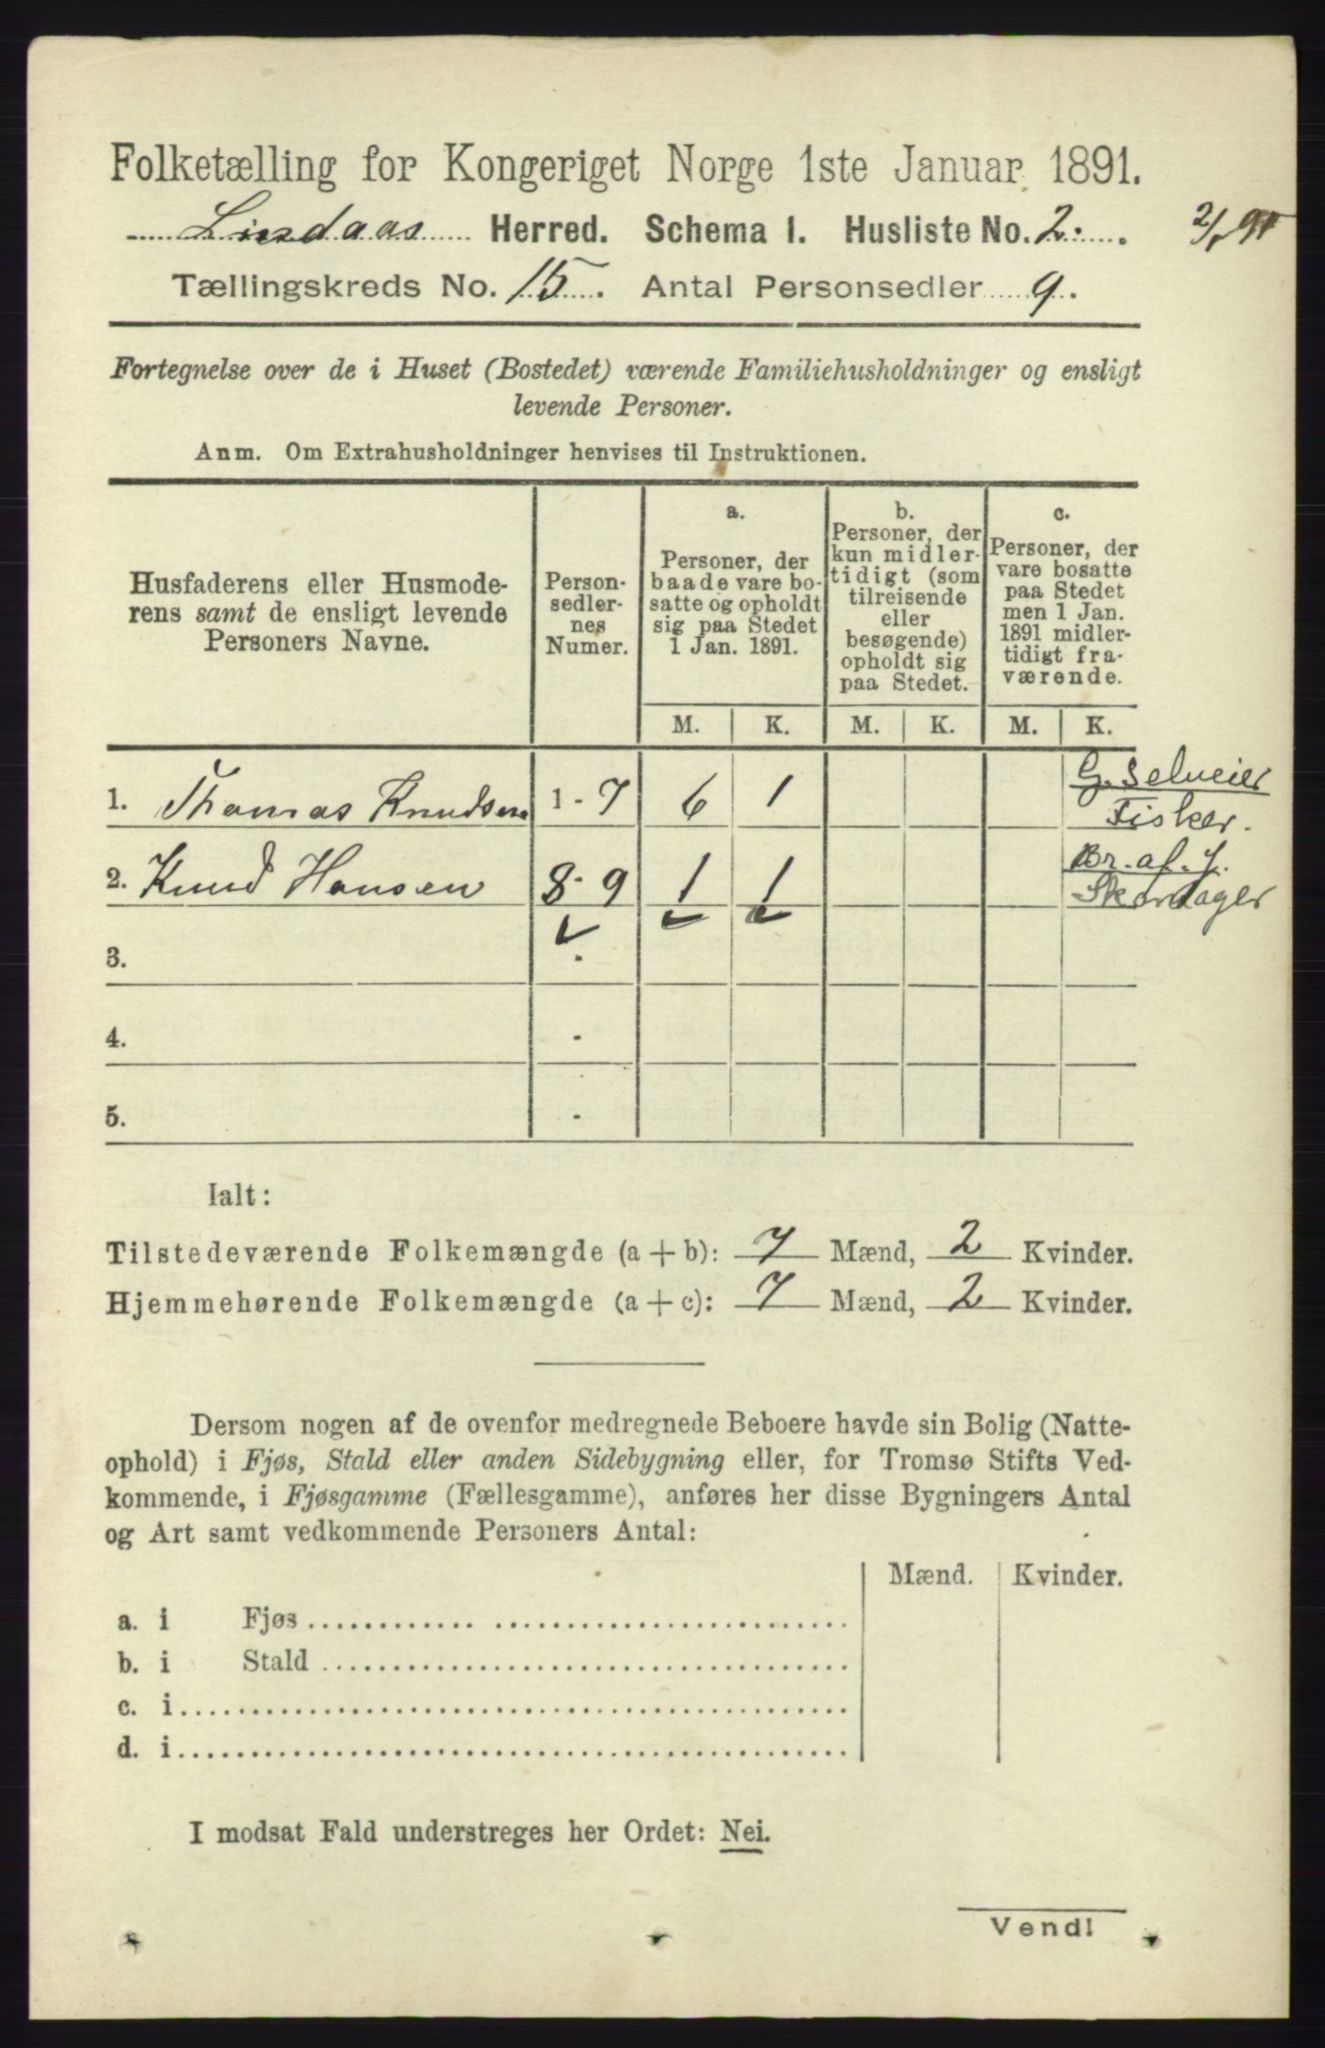 Folketælling for Kongeriget Norge 1ste Januar 1891.
Lindaas Herred. Schema 1. Husliste No. 2. 2/1 91
Tællingskreds No. 15. Antal Personsedler 9.
Fortegnelse over de i Huset (Bostedet) værende Familiehusholdninger og ensligt
levende Personer.
Anm. Om Extrahusholdninger henvises til Instruktionen.
Husfaderens eller Husmode-
rens samt de ensligt levende
Personers Navne.
Person-
sedler-
nes
Numer.
a.
Personer, der
baade vare bo-
satte og opholdt
sig paa Stedet
1 Jan. 1891.
b.
Personer, der
kun midler-
tidigt (som
tilreisende
eller
besøgende)
opholdt sig
paa Stedet.
c.
Personer, der
vare bosatte
paa Stedet
men 1 Jan.
1891 midler-
tidigt fra-
værende.
M. K. M. K. M. K.
1. Thomas Knudsen 1 - 7 6 1 G. Selveier
Fisker.
2. Knud Hansen 8 - 9 1 1 Br. af J.
3. -
4. -
5. -
Ialt:
Tilstedeværende Folkemængde (a + b): 7 Mænd, 2 Kvinder.
Hjemmehørende Folkemængde (a + c): 7 Mænd, 2 Kvinder.
Dersom nogen af de ovenfor medregnede Beboere havde sin Bolig (Natte-
ophold) i Fjøs, Stald eller anden Sidebygning eller, for Tromsø Stifts Ved-
kommende, i Fjøsgamme (Fællesgamme), anføres her disse Bygningers Antal
og Art samt vedkommende Personers Antal:
Mænd. Kvinder.
a. i Fjøs
b. i Stald
c. i
d. i
I modsat Fald understreges her Ordet: Nei.
Vend!